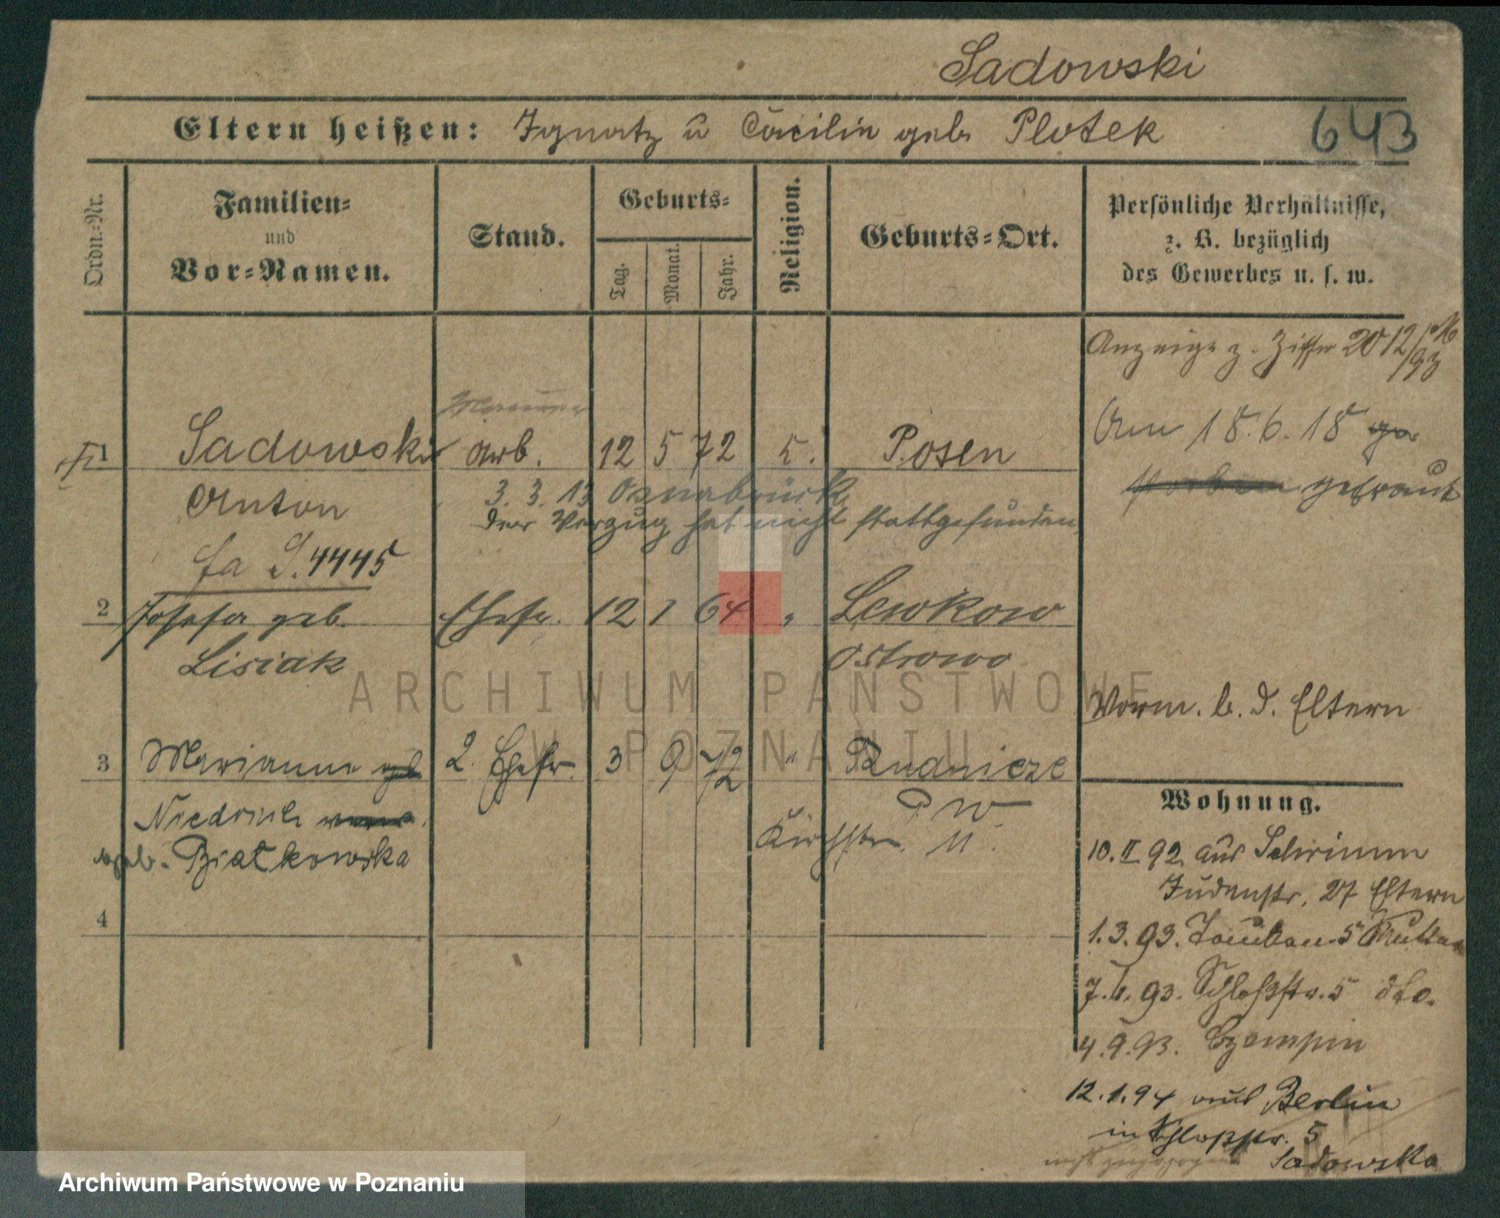 Sadowski
Eltern heißen: Ignatz u Cäcilia geb. Plotek
643
Ordn.-Nr.
Familien-
und
Vor-Namen.
Stand.
Geburts-
Tag.
Monat.
Jahr.
Religion.
Geburts-Ort.
Persönliche Verhältnisse,
z. B. bezüglich
des Gewerbes u. s. w.
Anzeige z. Ziffer 2012/93
Am 18.6.18
getraut
1 Sadowski Arb. 12 5 72 k. Posen
Anton
3. 3. 13 Osnabrück
Der Verzug hat nicht stattgefunden
fa S. 4445
2 Josefa geb. Ehefr. 12 1 64 " Lewkow
Lisiak Ostrowo
Vorm. b. d. Eltern
3 Marianna geb 2. Ehefr. 3 9 72 " Rudnicze
P W
Kirchstr. 11.
geb. Piatkowska
4
Wohnung.
10. II 92 aus Schrimm
Judenstr. 27 Eltern
1. 3. 93. 5 Mutter
7. 6. 93. Schloßstr. 5 dto.
4. 9. 93. Czempin
12. 1. 94 aus Berlin
in Schloßstr. 5
Sadowska
ARCHIWUM PAŃSTWOWE
W POZNANIU
Archiwum Państwowe w Poznaniu